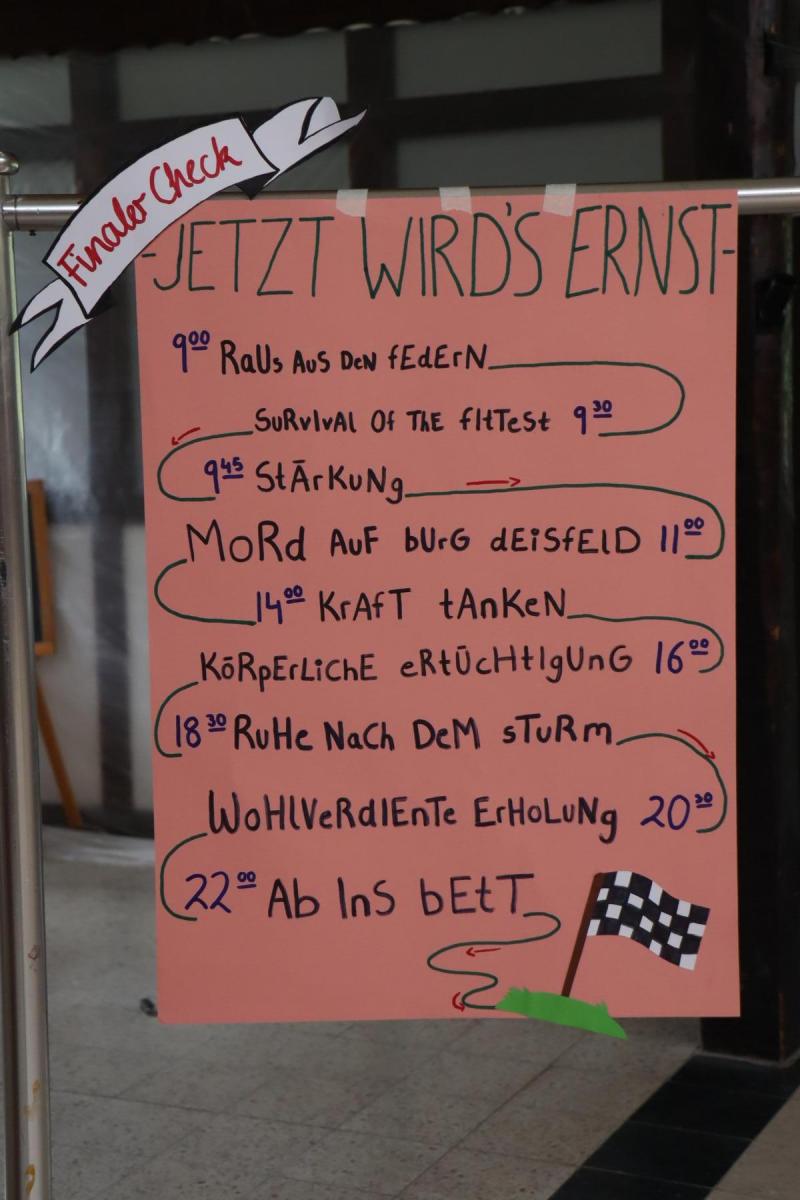 Finaler Check
-JETZT WIRD'S ERNST-
9⁰⁰ RaUs AuS DeN fEdErN
SuRvIvAl Of ThE fItTeSt 9³⁰
9⁴⁵ StÄrKuNg
MoRd AuF bUrG dEiSfElD 11⁰⁰
14⁰⁰ KrAfT tAnKeN
KöRpErLiChE eRtÜcHtIgUnG 16⁰⁰
18³⁰ RuHe NaCh DeM sTuRm
WoHlVeRdIEnTe ErHoLuNg 20³⁰
22⁰⁰ Ab InS bEtT